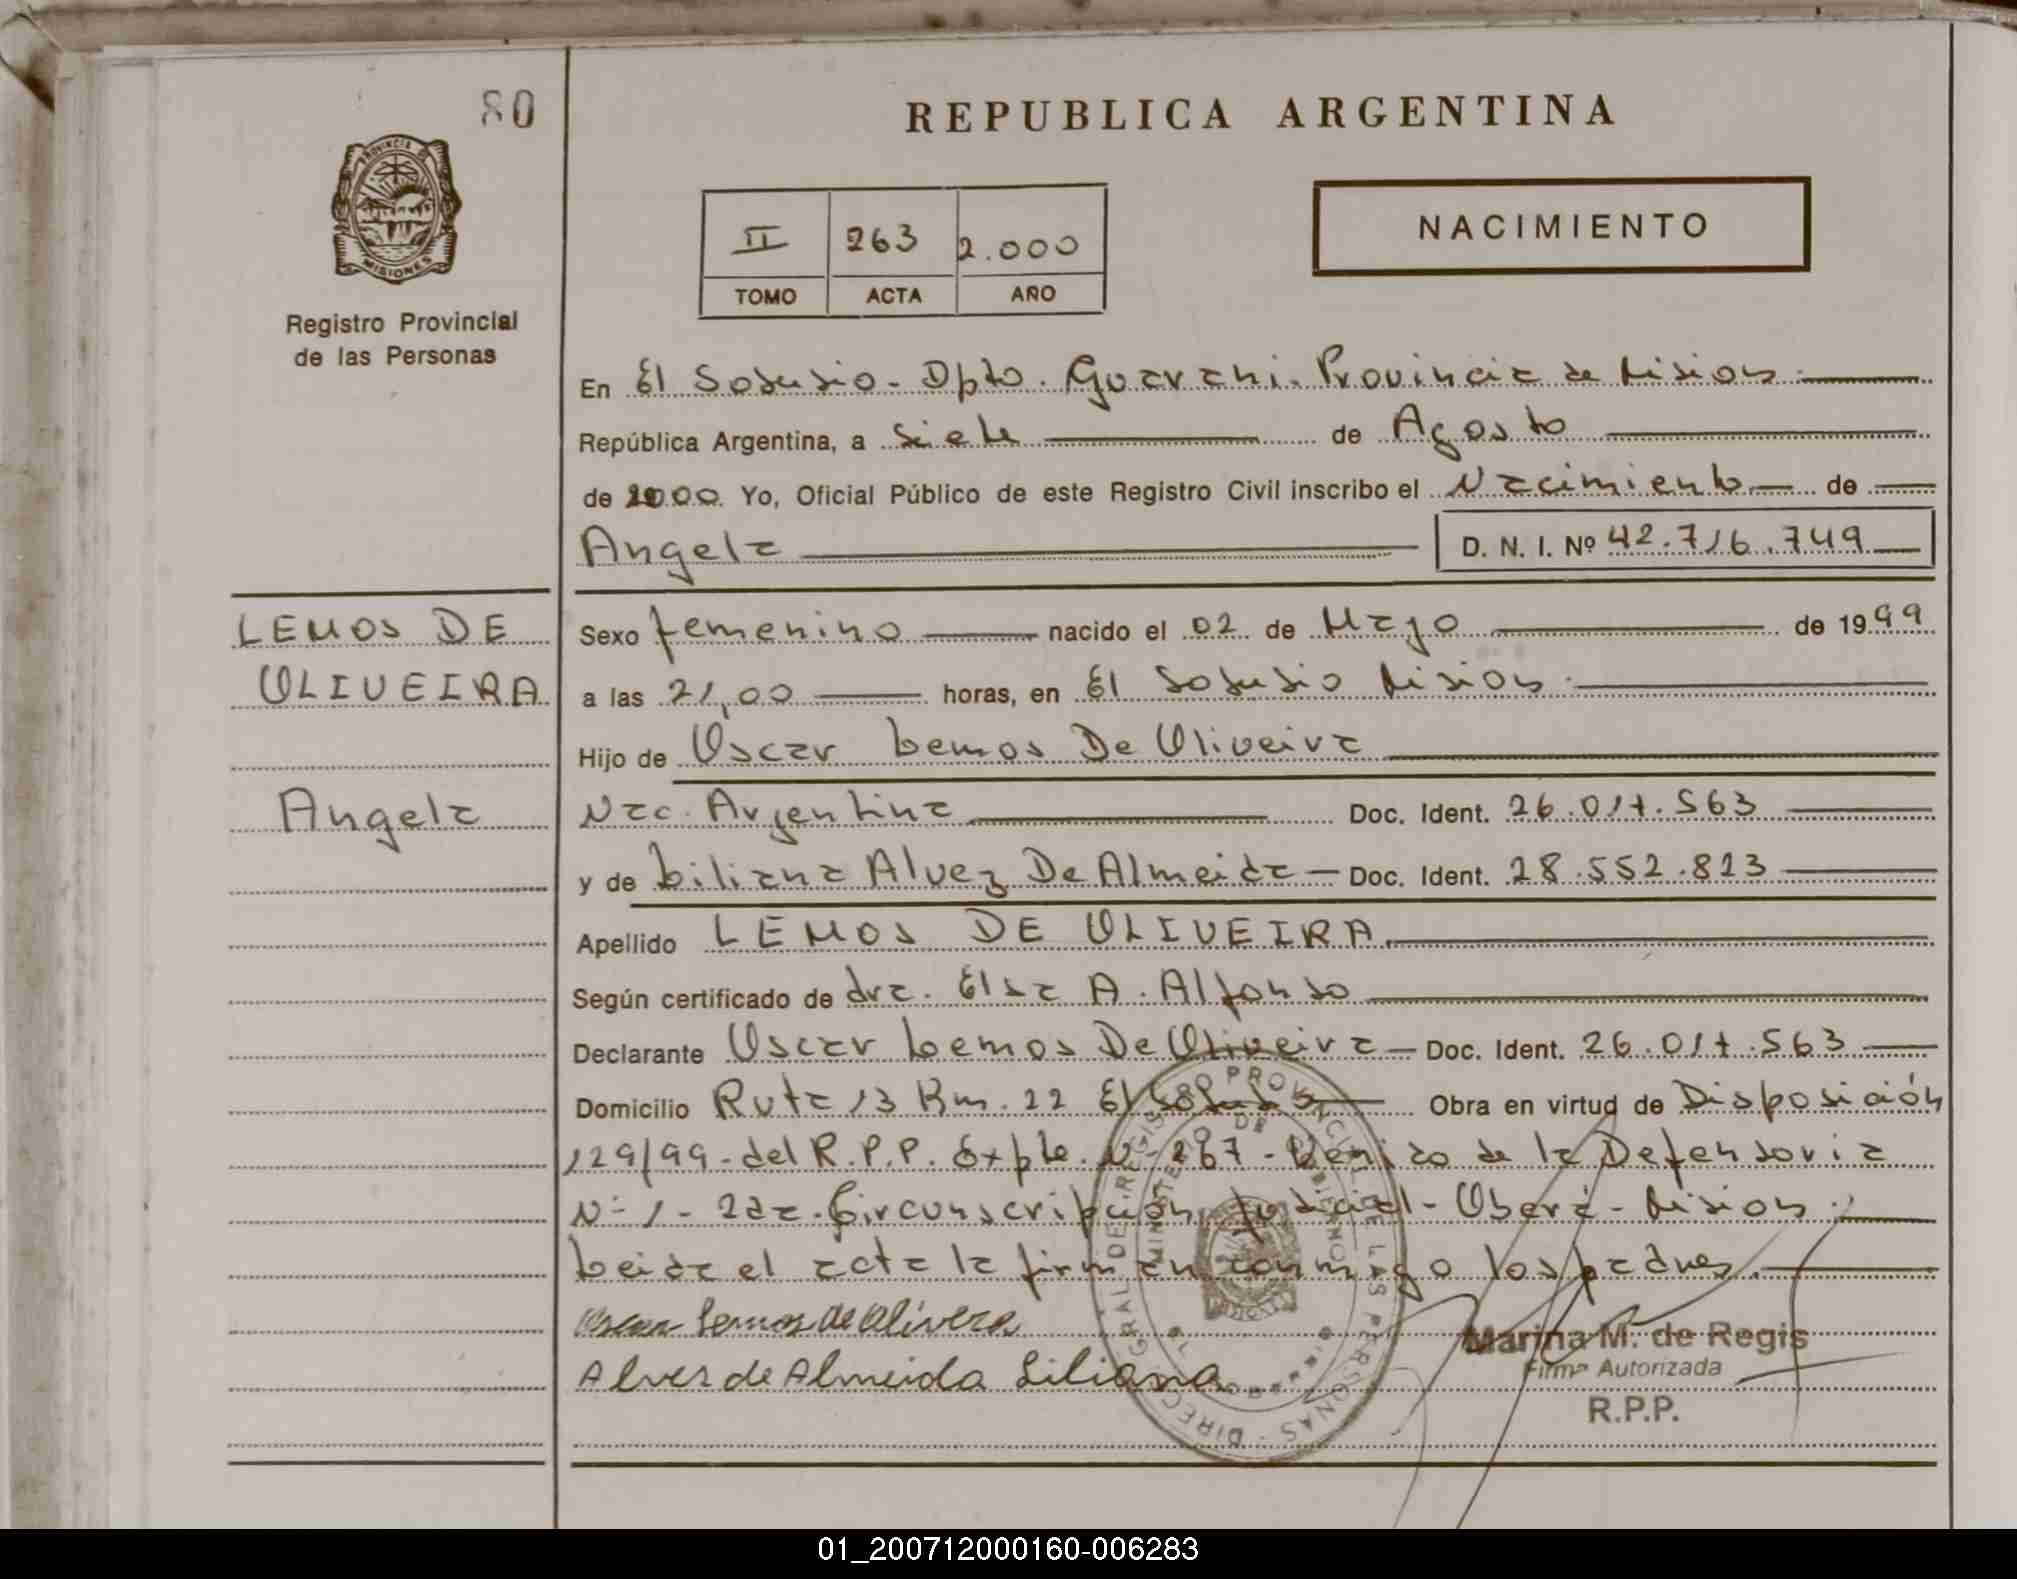 80
REPUBLICA ARGENTINA
PROVINCIA DE
MISIONES
Registro Provincial
de las Personas
NACIMIENTO
II 263 2.000
TOMO ACTA AÑO
En El Soberbio - Dpto. Guarani. Provincia de Misiones.
República Argentina, a Siete de Agosto
de 2000. Yo, Oficial Público de este Registro Civil inscribo el Nacimiento de
Angela D. N. I. Nº 42.716.749
LEMOS DE
OLIVEIRA
Angela
Sexo femenino nacido el 02 de Mayo de 1999
a las 21,00 horas, en El Soberbio Misiones.
Hijo de Oscar Lemos De Oliveira
Nac. Argentina Doc. Ident. 26.017.563
y de Liliana Alvez De Almeida Doc. Ident. 28.552.823
Apellido LEMOS DE OLIVEIRA
Según certificado de dra. Elsa A. Alfonso
Declarante Oscar Lemos De Oliveira Doc. Ident. 26.017.563
Domicilio Ruta 13 Km. 22 El Soberbio Obra en virtud de Disposición
129/99 - del R.P.P. Expte. Nº 267 - de la Defensoria
Nº 1 - 2da. Circunscripción Judicial - Oberá - Misiones.
Leida el acta la firman conmigo los padres.
Oscar Lemos de Olivera
Alves de Almeida Liliana
DIREC. GRAL. DE REGISTRO PROVINCIAL DE LAS PERSONAS
MINISTERIO DE GOBIERNO
Marina M. de Regis
Firma Autorizada
R.P.P.
01_200712000160-006283